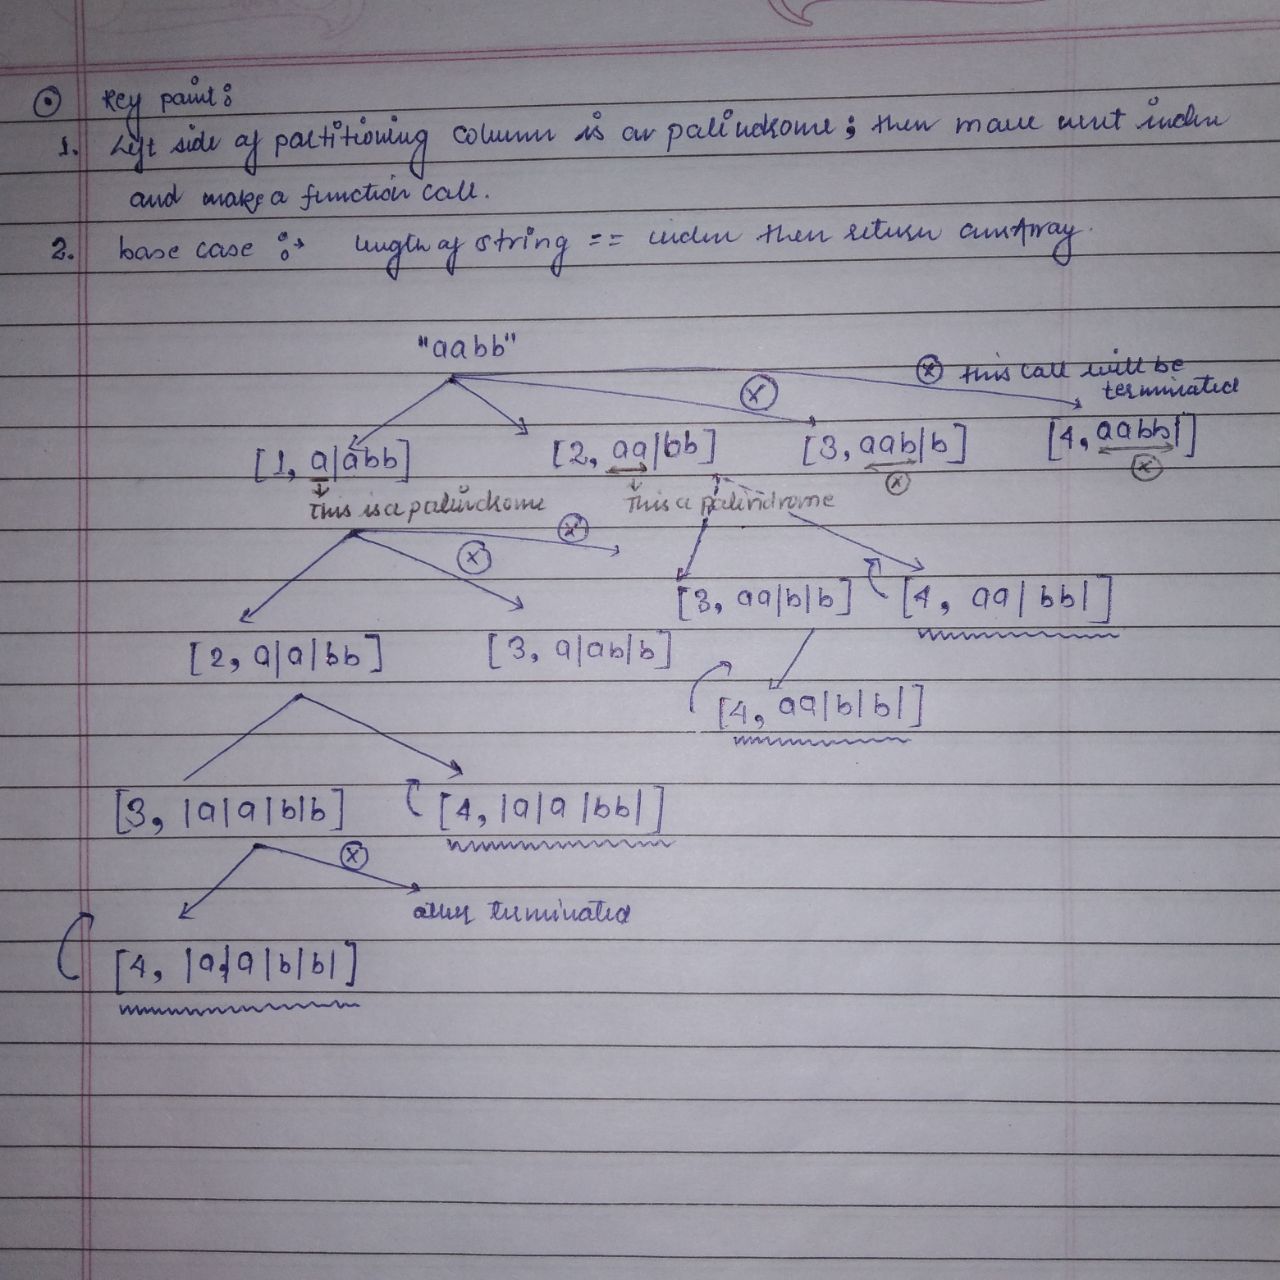 Key point:
1. Left side of partitioning column is a palindrome; then move next index
and make a function call.
2. base case :→ length of string == index then return array.
"aabb"
ⓧ this call will be
terminated
ⓧ
[1, a|abb] [2, aa|bb] [3, aab|b] [4, aabb|]
ⓧ ⓧ
This is a palindrome This a palindrome
ⓧ ⓧ
[3, aa|b|b] [4, aa|bb|]
[2, a|a|bb] [3, a|ab|b]
[4, aa|b|b|]
[3, |a|a|b|b] [4, |a|a|bb|]
ⓧ
terminated
[4, |a|a|b|b|]